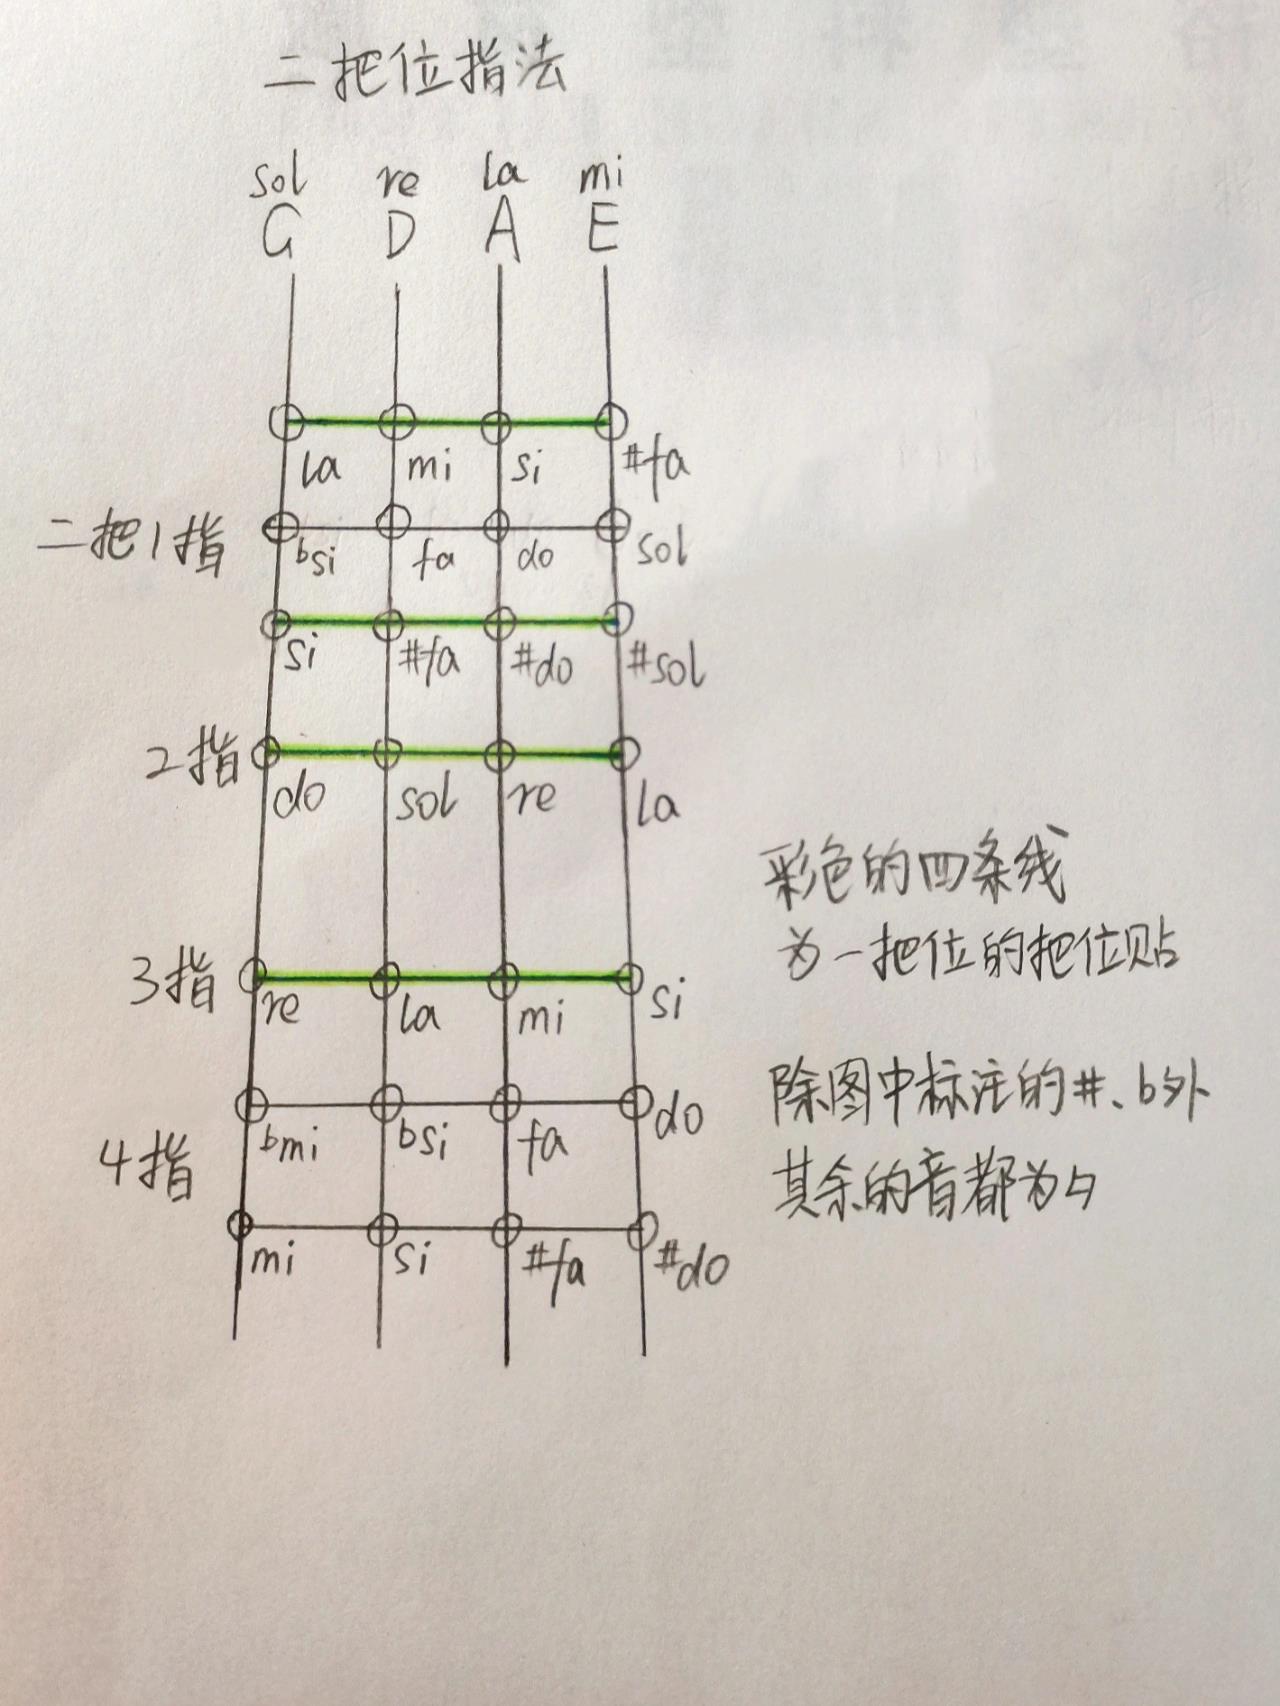 二把位指法
sol re la mi
G D A E
la mi si #fa
二把1指 bsi fa do sol
si #fa #do #sol
2指 do sol re la
彩色的四条线
为一把位的把位贴
3指 re la mi si
除图中标注的#、b外
bmi bsi fa do
4指
其余的音都为♮
mi si #fa #do